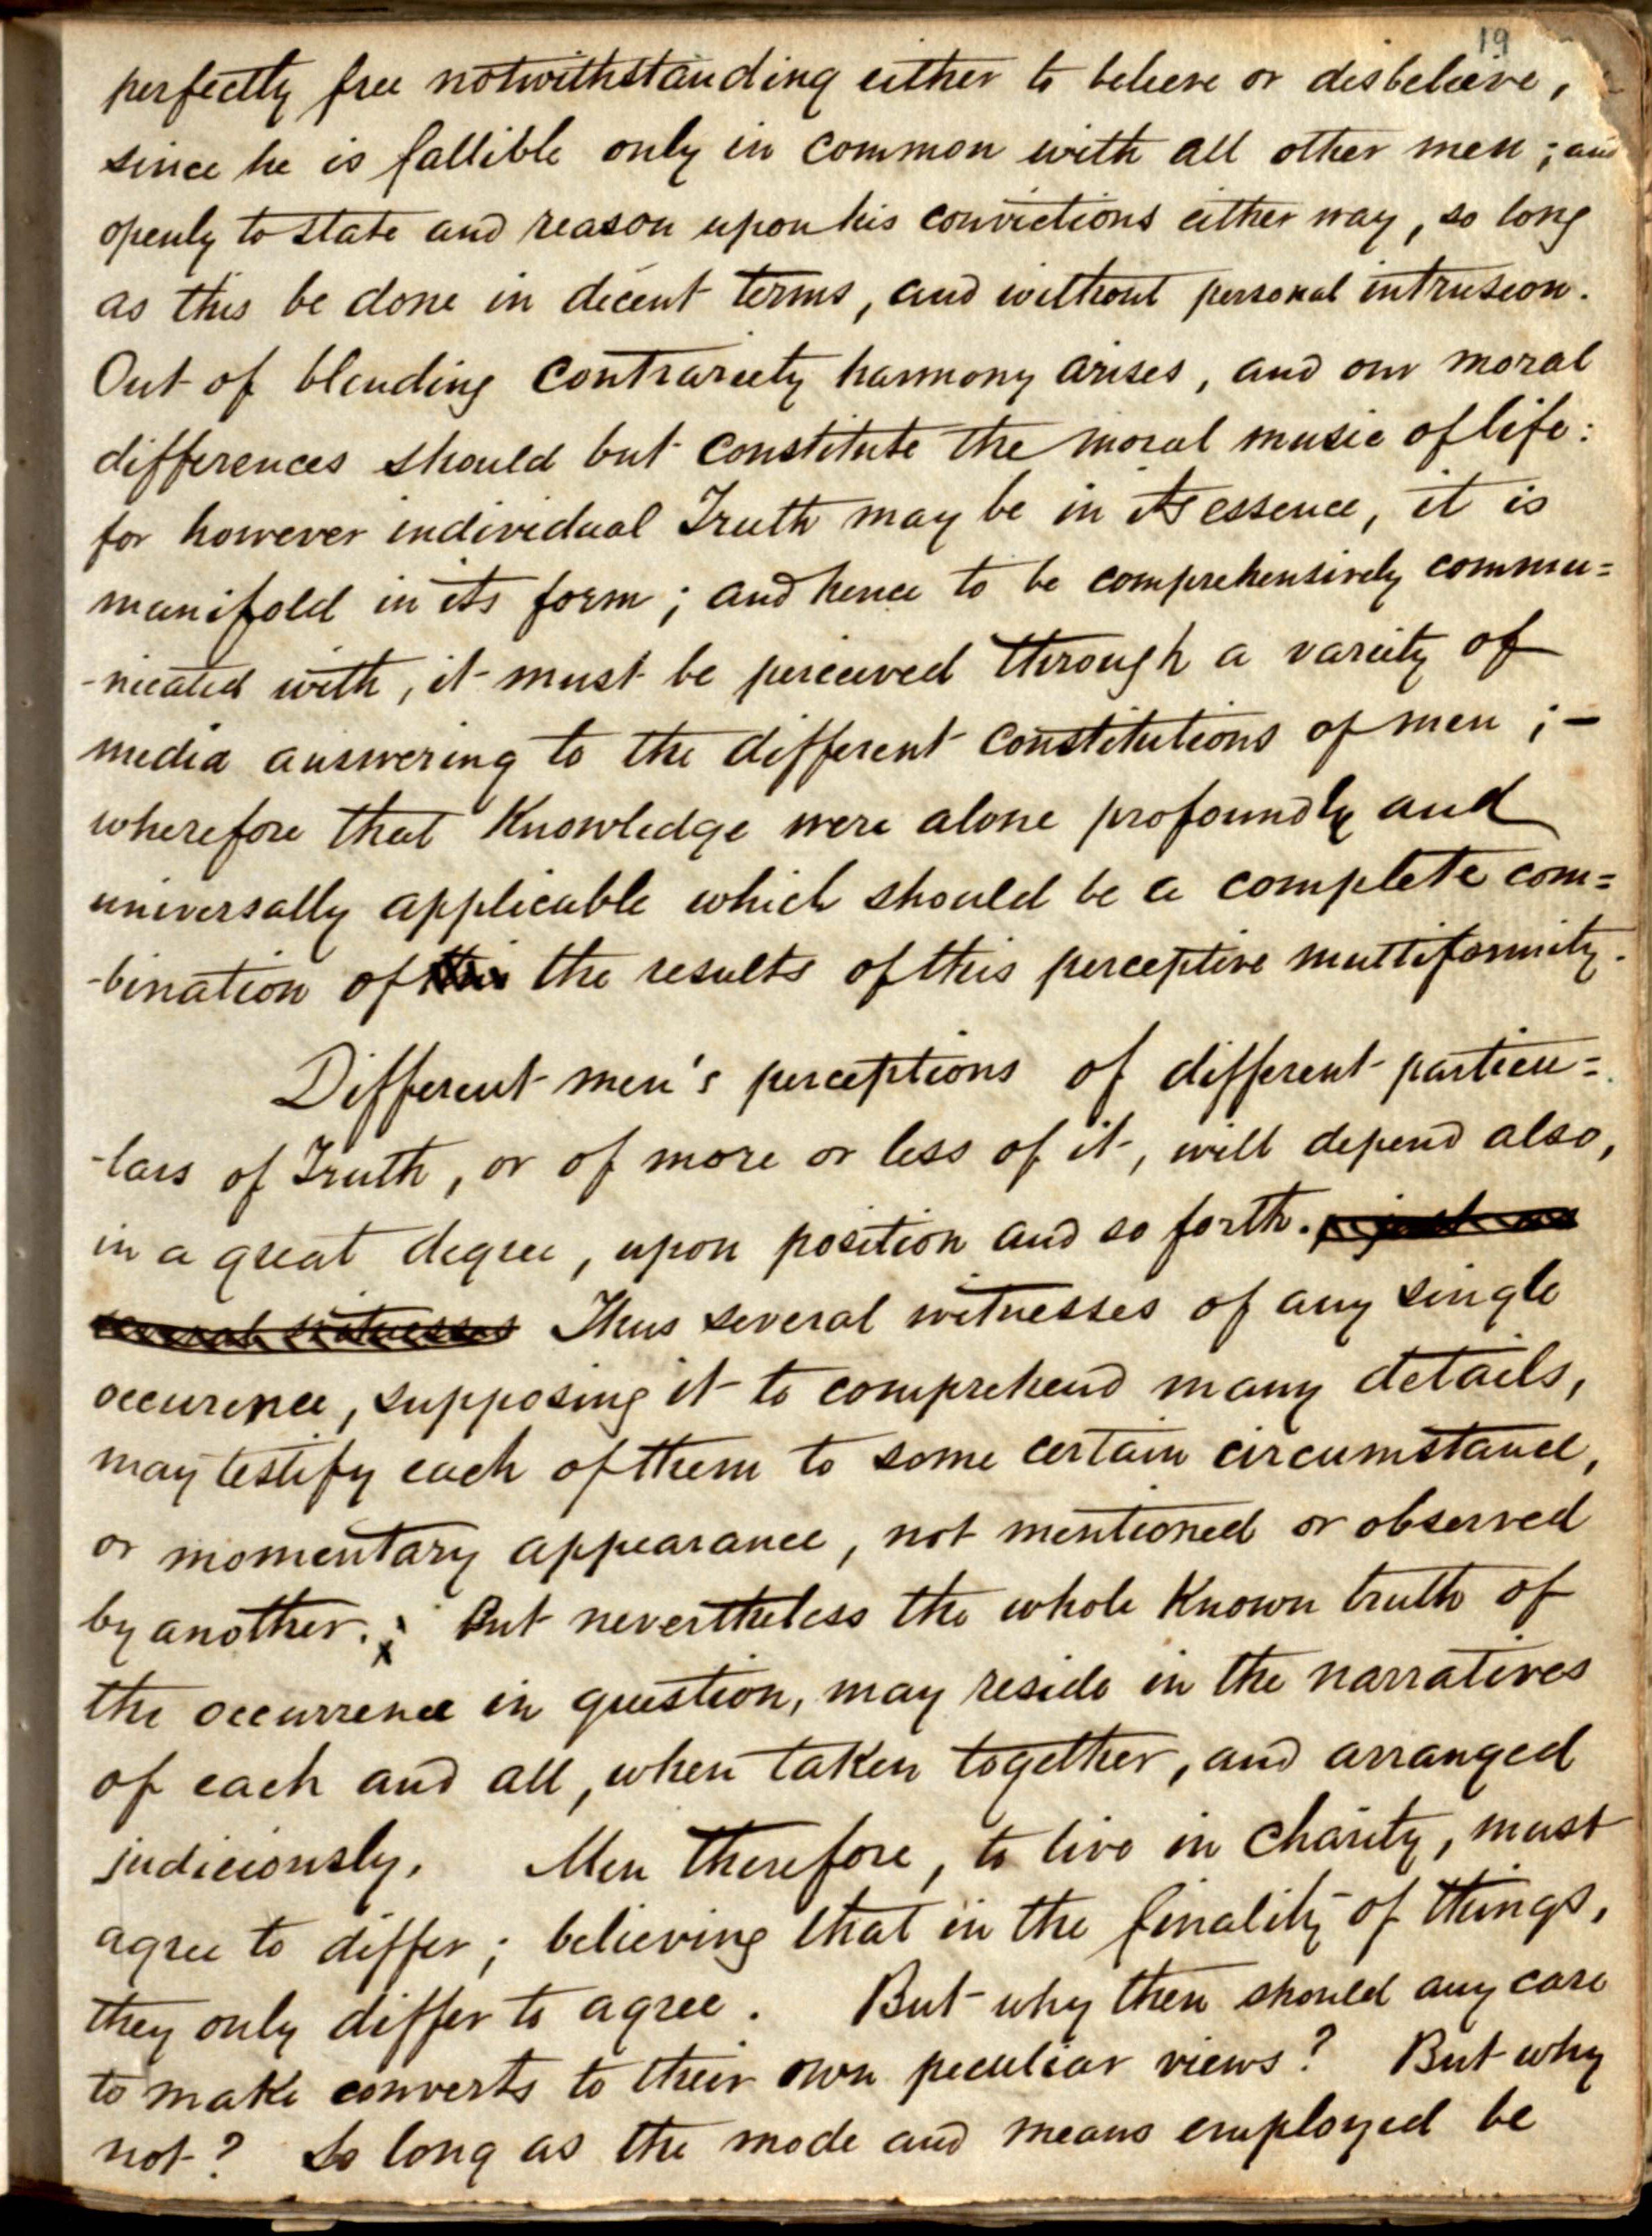 19
perfectly free notwithstanding either to believe or disbelieve,
since he is fallible only in common with all other men; and
openly to state and reason upon his convictions either way, so long
as this be done in decent terms, and without personal intrusion.
Out of blending contrariety harmony arises, and our moral
differences should but constitute the moral music of life:
for however individual Truth may be in its essence, it is
manifold in its form; and hence to be comprehensively commu=
-nicated with, it must be perceived through a variety of
media answering to the different constitutions of men; —
wherefore that Knowledge were alone profoundly and
universally applicable which should be a complete com=
-bination of the results of this perceptive multiformity.
Different men's perceptions of different particu=
-lars of Truth, or of more or less of it, will depend also,
in a great degree, upon position and so forth. just as
several witnesses Thus several witnesses of any single
occurence, supposing it to comprehend many details,
may testify each of them to some certain circumstance,
or momentary appearance, not mentioned or observed
by another. But nevertheless the whole Known truth of
the occurrence in question, may reside in the narratives
of each and all, when taken together, and arranged
judiciously. Men therefore, to live in charity, must
agree to differ; believing that in the finality of things,
they only differ to agree. But why then should any care
to make converts to their own peculiar views? But why
not? So long as the mode and means employed be